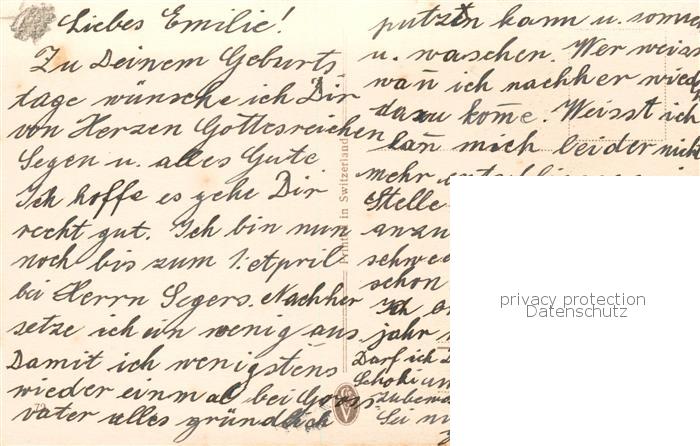 Liebes Emilie!
Zu Deinem Geburts
tage wünsche ich Dir
von Herzen Gottesreichen
Segen u. alles Gute
Ich hoffe es gehe Dir
recht gut. Ich bin nun
noch bis zum 1. April
bei Herrn Segers. Nachher
setze ich ein wenig aus
Damit ich wenigstens
wieder einmal bei Gross
vater alles gründlich
putzen kann u.
u. waschen. Wer weiss
wan̄ ich nachher wied
dazu kom̄e. Weisst ich
kan̄ mich leider nicht
mehr
Stelle
anzu
schwe
schon
Ich
jahr
Darf ich D
Schoki un
Sei
Printed in Switzerland
privacy protection
Datenschutz